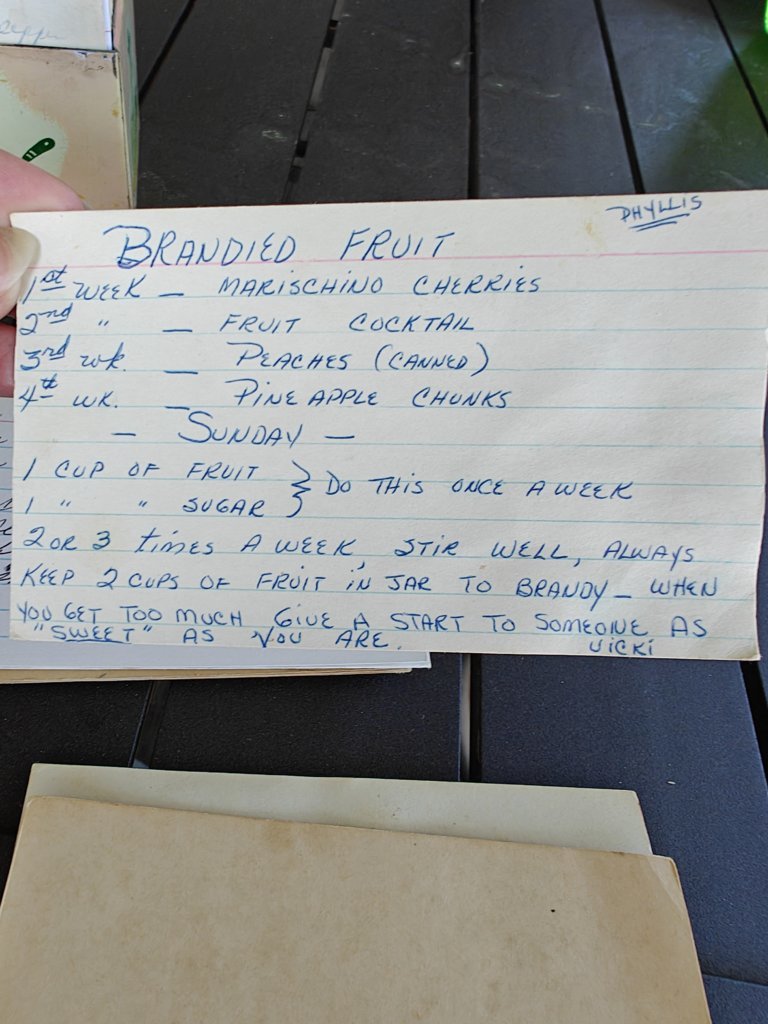 PHYLLIS
BRANDIED FRUIT
1st WEEK - MARISCHINO CHERRIES
2nd " - FRUIT COCKTAIL
3rd wk. - PEACHES (CANNED)
4th WK. - PINEAPPLE CHUNKS
- SUNDAY -
1 CUP OF FRUIT } DO THIS ONCE A WEEK
1 " " SUGAR
2 OR 3 times A WEEK, STIR WELL, ALWAYS
KEEP 2 CUPS OF FRUIT iN JAR TO BRANDY - WHEN
YOU GET TOO MUCH GIVE A START TO SOMEONE AS
"SWEET" AS YOU ARE.
ViCKi